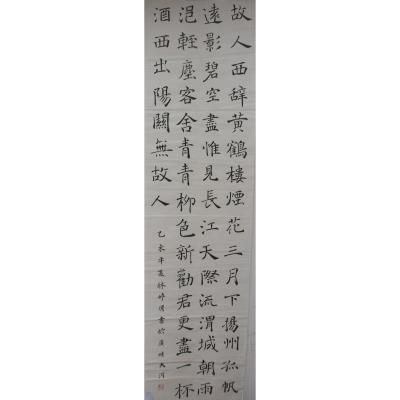 故人西辭黃鶴樓煙花三月下揚州孤帆
遠影碧空盡惟見長江天際流渭城朝雨
浥輕塵客舍青青柳色新勸君更盡一杯
酒西出陽關無故人
乙未年夏林婷書於